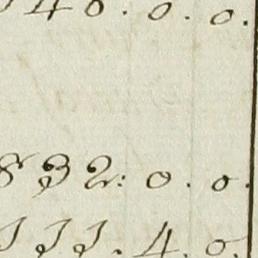 40. 0. 0.
832: 0. 0.
111. 4. 0.